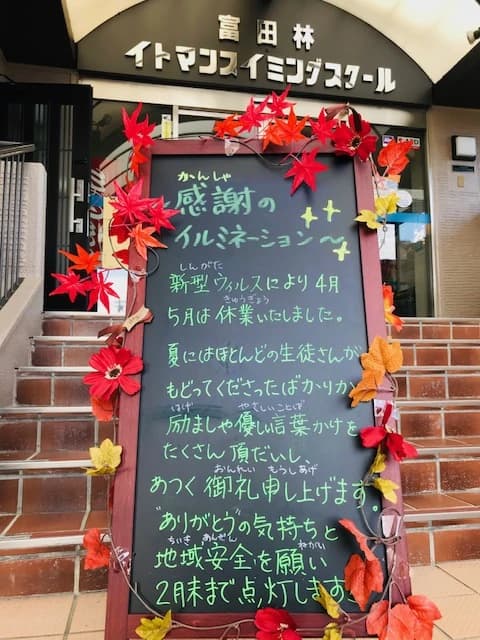 富田林
イトマンスイミングスクール
かんしゃ
感謝の
イルミネーション〜
しんがた
新型ウィルスにより4月
きゅうぎょう
5月は休業いたしました。
夏にはほとんどの生徒さんが
もどってくださったばかりか
はげ やさしいことば
励ましや優しい言葉かけを
たくさん頂だいし、
おんれい もうしあげ
あつく御礼申し上げます。
"ありがとう"の気持ちと
ちいき あんぜん ねがい
地域安全を願い
2月末まで点灯します。